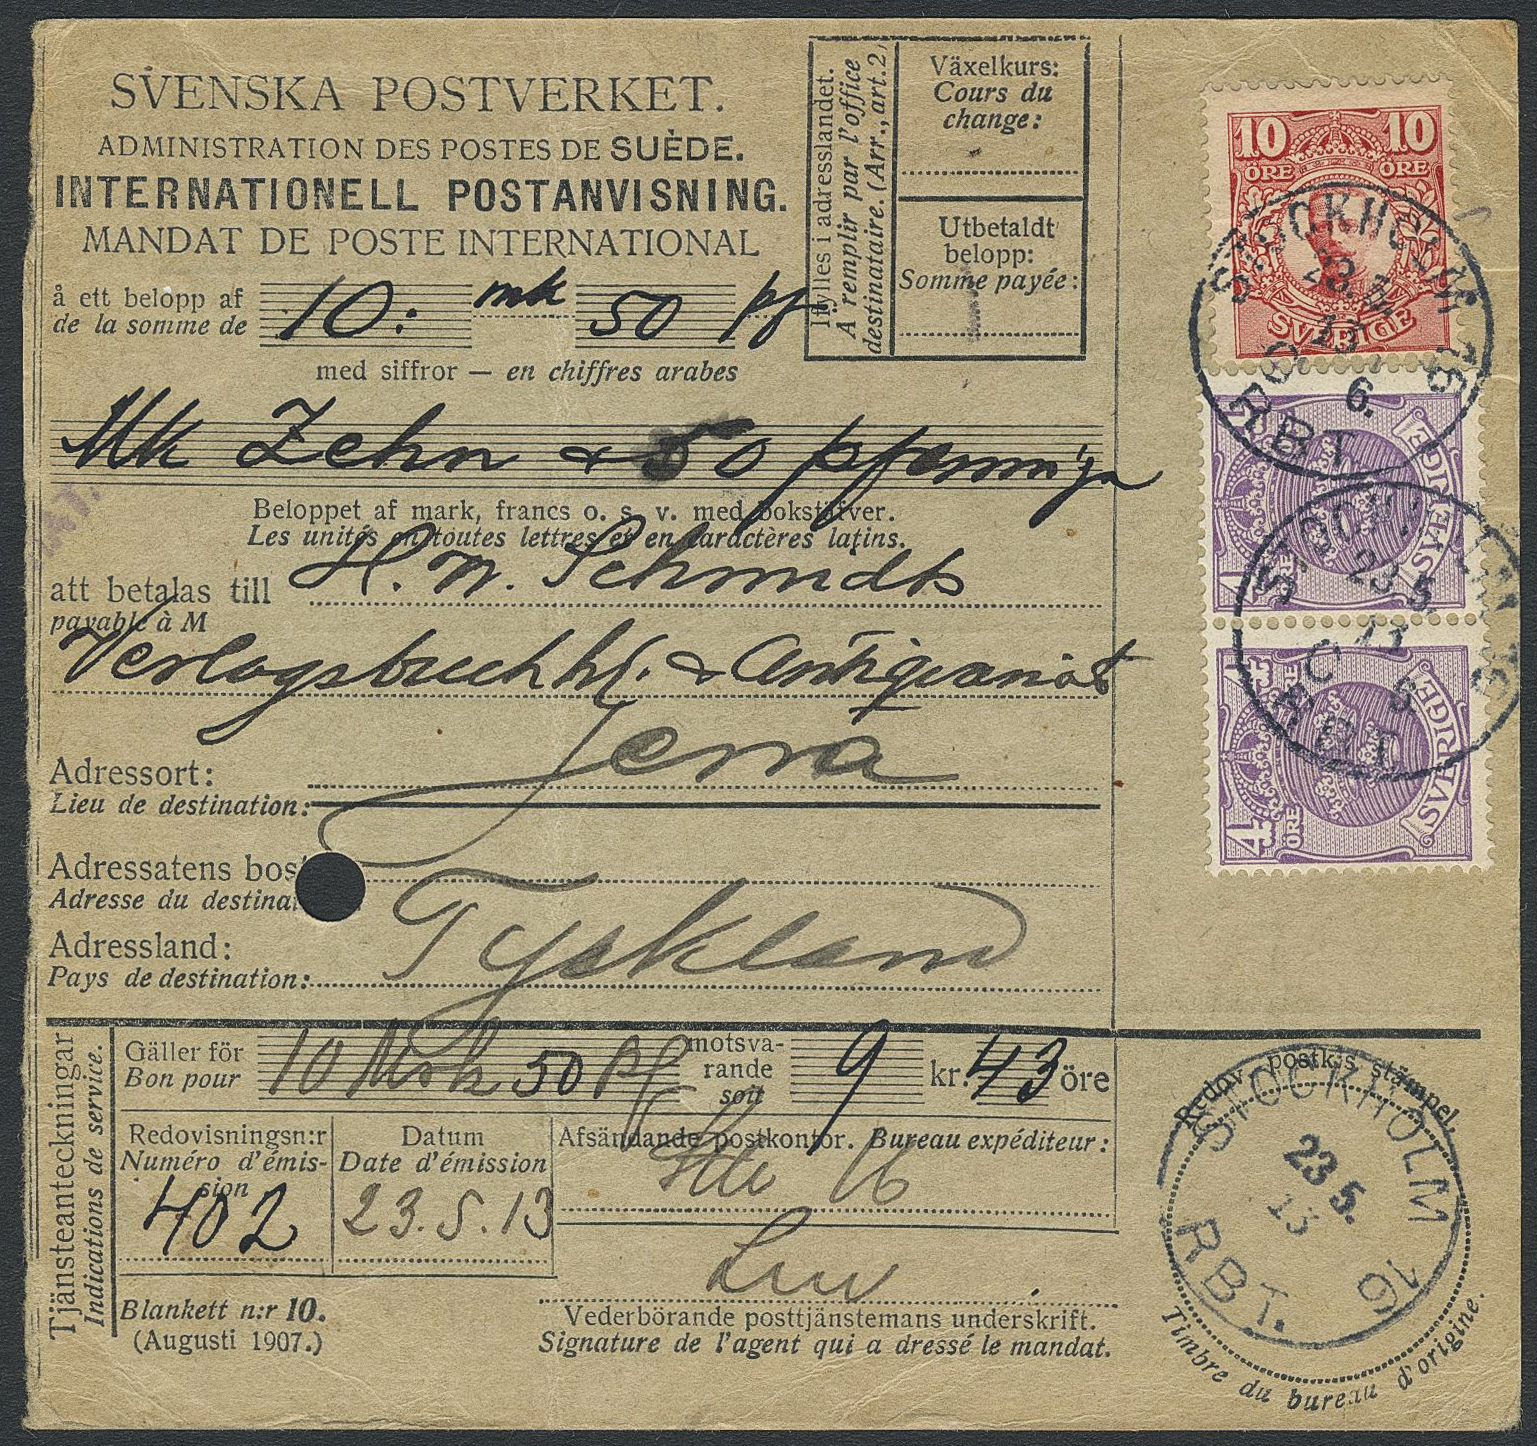 SVENSKA POSTVERKET.
ADMINISTRATION DES POSTES DE SUÈDE.
INTERNATIONELL POSTANVISNING.
MANDAT DE POSTE INTERNATIONAL
å ett belopp af
de la somme de
10: mk 50 pf
med siffror — en chiffres arabes
Ifylles i adresslandet.
A remplir par l'office
destinataire. (Arr., art. 2)
Växelkurs:
Cours du
change:
Utbetaldt
belopp:
Somme payée:
Mk Zehn & 50 pfennige
Beloppet af mark, francs o. s. v. med bokstäfver.
Les unités en toutes lettres et en caractères latins.
att betalas till
payable à M
H. W. Schmidts
Verlagsbuchhl. & Antiqvariat
Jena
Adressort:
Lieu de destination:
Adressatens bos
Adresse du destina
Adressland:
Pays de destination:
Tyskland
10 ÖRE 10 ÖRE
SVERIGE
SVERIGE
4 4
ÖRE
SVERIGE
STOCKHOLM 16
23. 5.
13
6.
RBT.
STOCKHOLM 16
23 5.
13
RBT.
Tjänsteanteckningar
Indications de service.
Gäller för
Bon pour
10 Mrk 50 pf
motsva-
rande
sott
9 kr. 43 öre
Redovisningsn:r
Numéro d'émis-
sion
402
Datum
Date d'émission
23.5.13
Afsändande postkontor. Bureau expéditeur:
16
Vederbörande posttjänstemans underskrift.
Signature de l'agent qui a dressé le mandat.
Blankett n:r 10.
(Augusti 1907.)
Redov. postk:s stämpel.
STOCKHOLM 16
23 5.
13
RBT.
Timbre du bureau d'origine.